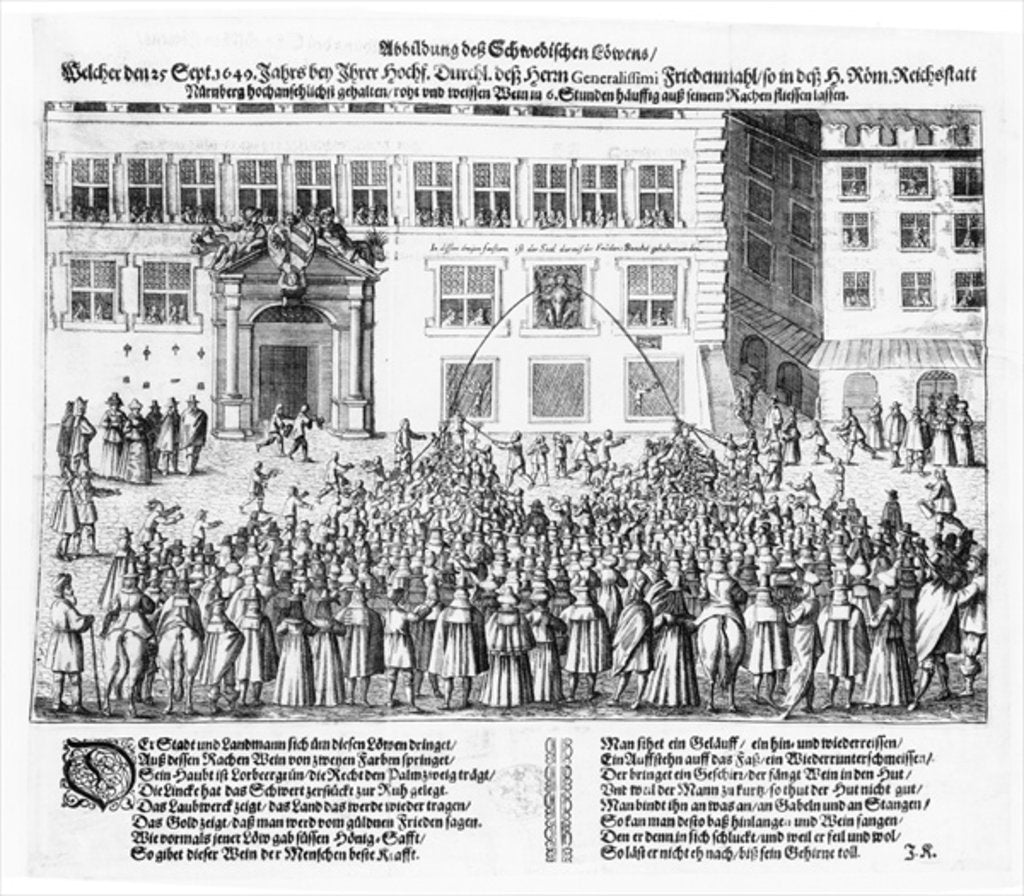 Abbildung deß Schwedischen Löwens/
Welcher den 25 Sept. 1649. Jahrs bey Ihrer Hochf. Durchl. deß Herrn Generalissimi Friedenmahl/ so in deß H. Röm. Reichsstatt
Nürnberg hochansehlichst gehalten/ roht und weissen Wein in 6. Stunden häuffig auß seinem Rachen fliessen lassen.
In disem ist der Saal darinnen
DEr Stadt und Landmann sich üm diesen Löwen dringet/
Auß dessen Rachen Wein von zweyen Farben springet/
Sein Haubt ist Lorbeergrün/ die Recht den Palmzweig trägt/
Die Lincke hat das Schwert zerstückt zur Ruh gelegt.
Das Laubwerck zeigt/ das Land das werde wieder tragen/
Das Gold zeigt/ daß man werd vom güldnen Frieden sagen.
Wie vormals jener Löw gab süssen Hönig-Safft/
So gibet dieser Wein der Menschen beste Krafft.
Man sihet ein Geläuff/ ein hin- und wiederreissen/
Ein Auffstehn auff das Faß/ ein Wiederrunterschmeissen/
Der bringet ein Geschirr/ der fängt Wein in den Hut/
Und weil der Mann zu kurtz/ so thut der Hut nicht gut/
Man bindt ihn an was an/ an Gabeln und an Stangen/
So kan man desto baß hinlangen und Wein fangen/
Den er denn in sich schluckt/ und weil er feil und wol/
So läst er nicht eh nach/ biß sein Gehirne toll.
J. K.